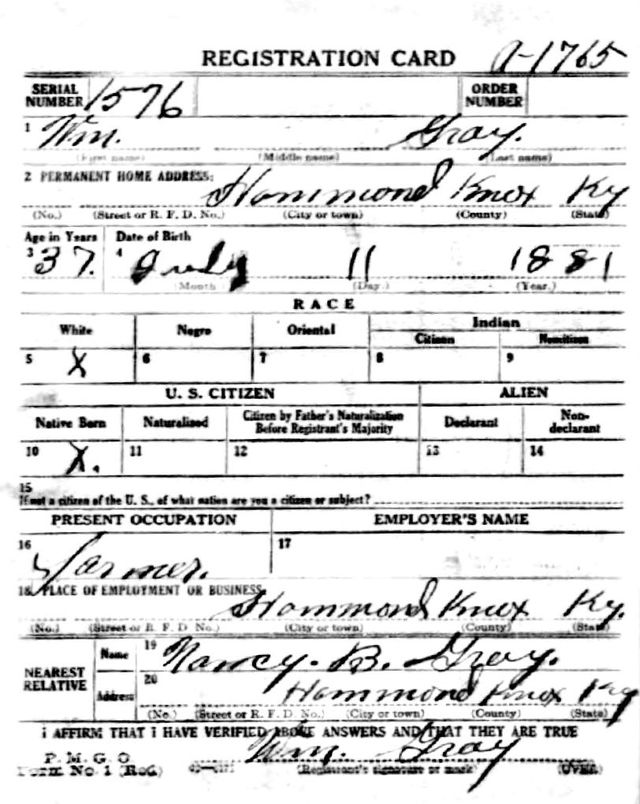 REGISTRATION CARD A-1765
SERIAL NUMBER 1576 ORDER NUMBER
1 Wm. Gray.
(First name) (Middle name) (Last name)
2 PERMANENT HOME ADDRESS:
Hammond Knox Ky
(No.) (Street or R. F. D. No.) (City or town) (County) (State)
Age in Years Date of Birth
3 37. 4 July 11 1881
(Month) (Day) (Year.)
RACE
White Negro Oriental Indian
Citizen Noncitizen
5 X 6 7 8 9
U. S. CITIZEN ALIEN
Native Born Naturalized Citizen by Father's Naturalization Before Registrant's Majority Declarant Non-declarant
10 X. 11 12 13 14
15
If not a citizen of the U. S., of what nation are you a citizen or subject?
PRESENT OCCUPATION EMPLOYER'S NAME
16 Farmer. 17
18 PLACE OF EMPLOYMENT OR BUSINESS.
Hammond Knox Ky.
(No.) (Street or R. F. D. No.) (City or town) (County) (State)
NEAREST RELATIVE Name 19 Nancy. B. Gray.
Address 20 Hammond Knox Ky
(No.) (Street or R. F. D. No.) (City or town) (County) (State)
I AFFIRM THAT I HAVE VERIFIED ABOVE ANSWERS AND THAT THEY ARE TRUE
P. M. G. O
Form No. 1 (Red) Wm. Gray
(Registrant's signature or mark) (OVER)